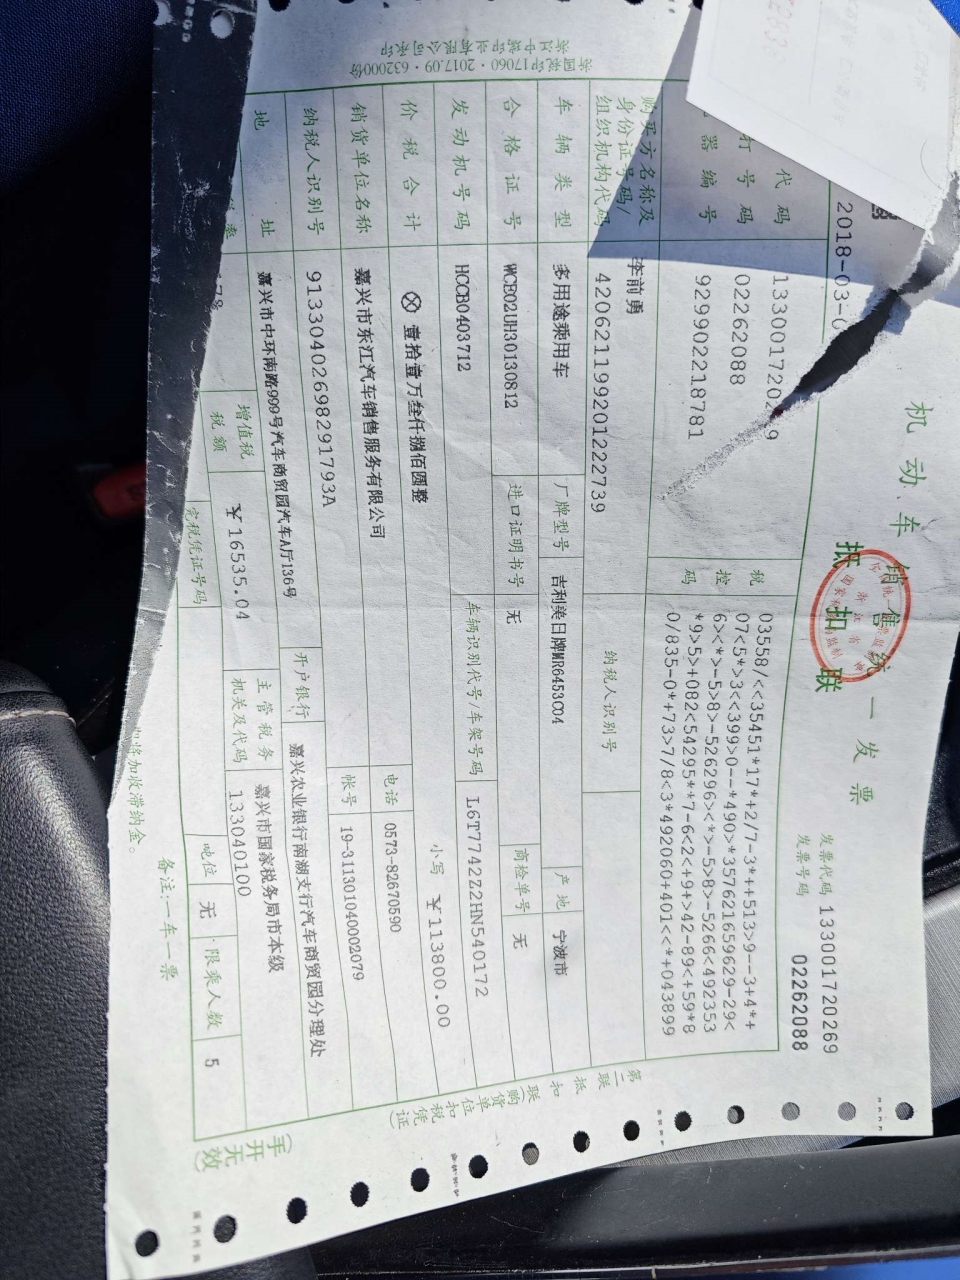 机动车销售统一发票
抵扣联
发票代码 133001720269
发票号码 02262088
2018-03-0
代码 1330017202 9
打号码 02262088
器编号 929902218781
税控码
03558/<<35451*17*+2/7-3*++513>9--3+4*+
07<5*>3<<399>0--*490>*35762165 9629-29<
6><*>-5>8>-526296><*>-5>8>-5266<492353
*9>5>+082<54295**7-6<2<+9+>42-89<+59*8
0/835-0*+73>7/8<3*492060+401<<*+043899
购买方名称及身份证号码/组织机构代码 李前勇
420621199201222739
纳税人识别号
车辆类型 多用途乘用车 厂牌型号 吉利美日牌MR6453C04 产地 宁波市
合格证号 WCE02UH30130812 进口证明书号 无 商检单号 无
发动机号码 HCCB0403712 车辆识别代号/车架号码 L6T7742Z2HN540172
价税合计 ⊗ 壹拾壹万叁仟捌佰圆整 小写 ¥113800.00
销货单位名称 嘉兴市东江汽车销售服务有限公司 电话 0573-82670590
纳税人识别号 91330402698291793A 帐号 19-311301040002079
地址 嘉兴市中环南路999号汽车商贸园汽车A厅136号 开户银行 嘉兴农业银行南湖支行汽车商贸园分理处
增值税税额 ¥16535.04 主管税务机关及代码 嘉兴市国家税务局市本级
133040100
完税凭证号码 吨位 无 限乘人数 5
加收滞纳金。
备注:一车一票
(手开无效)
第二联 抵扣联(购货单位扣税凭证)
浙国税印17060·2017.09·632000份
浙江中瑞印业有限公司承印